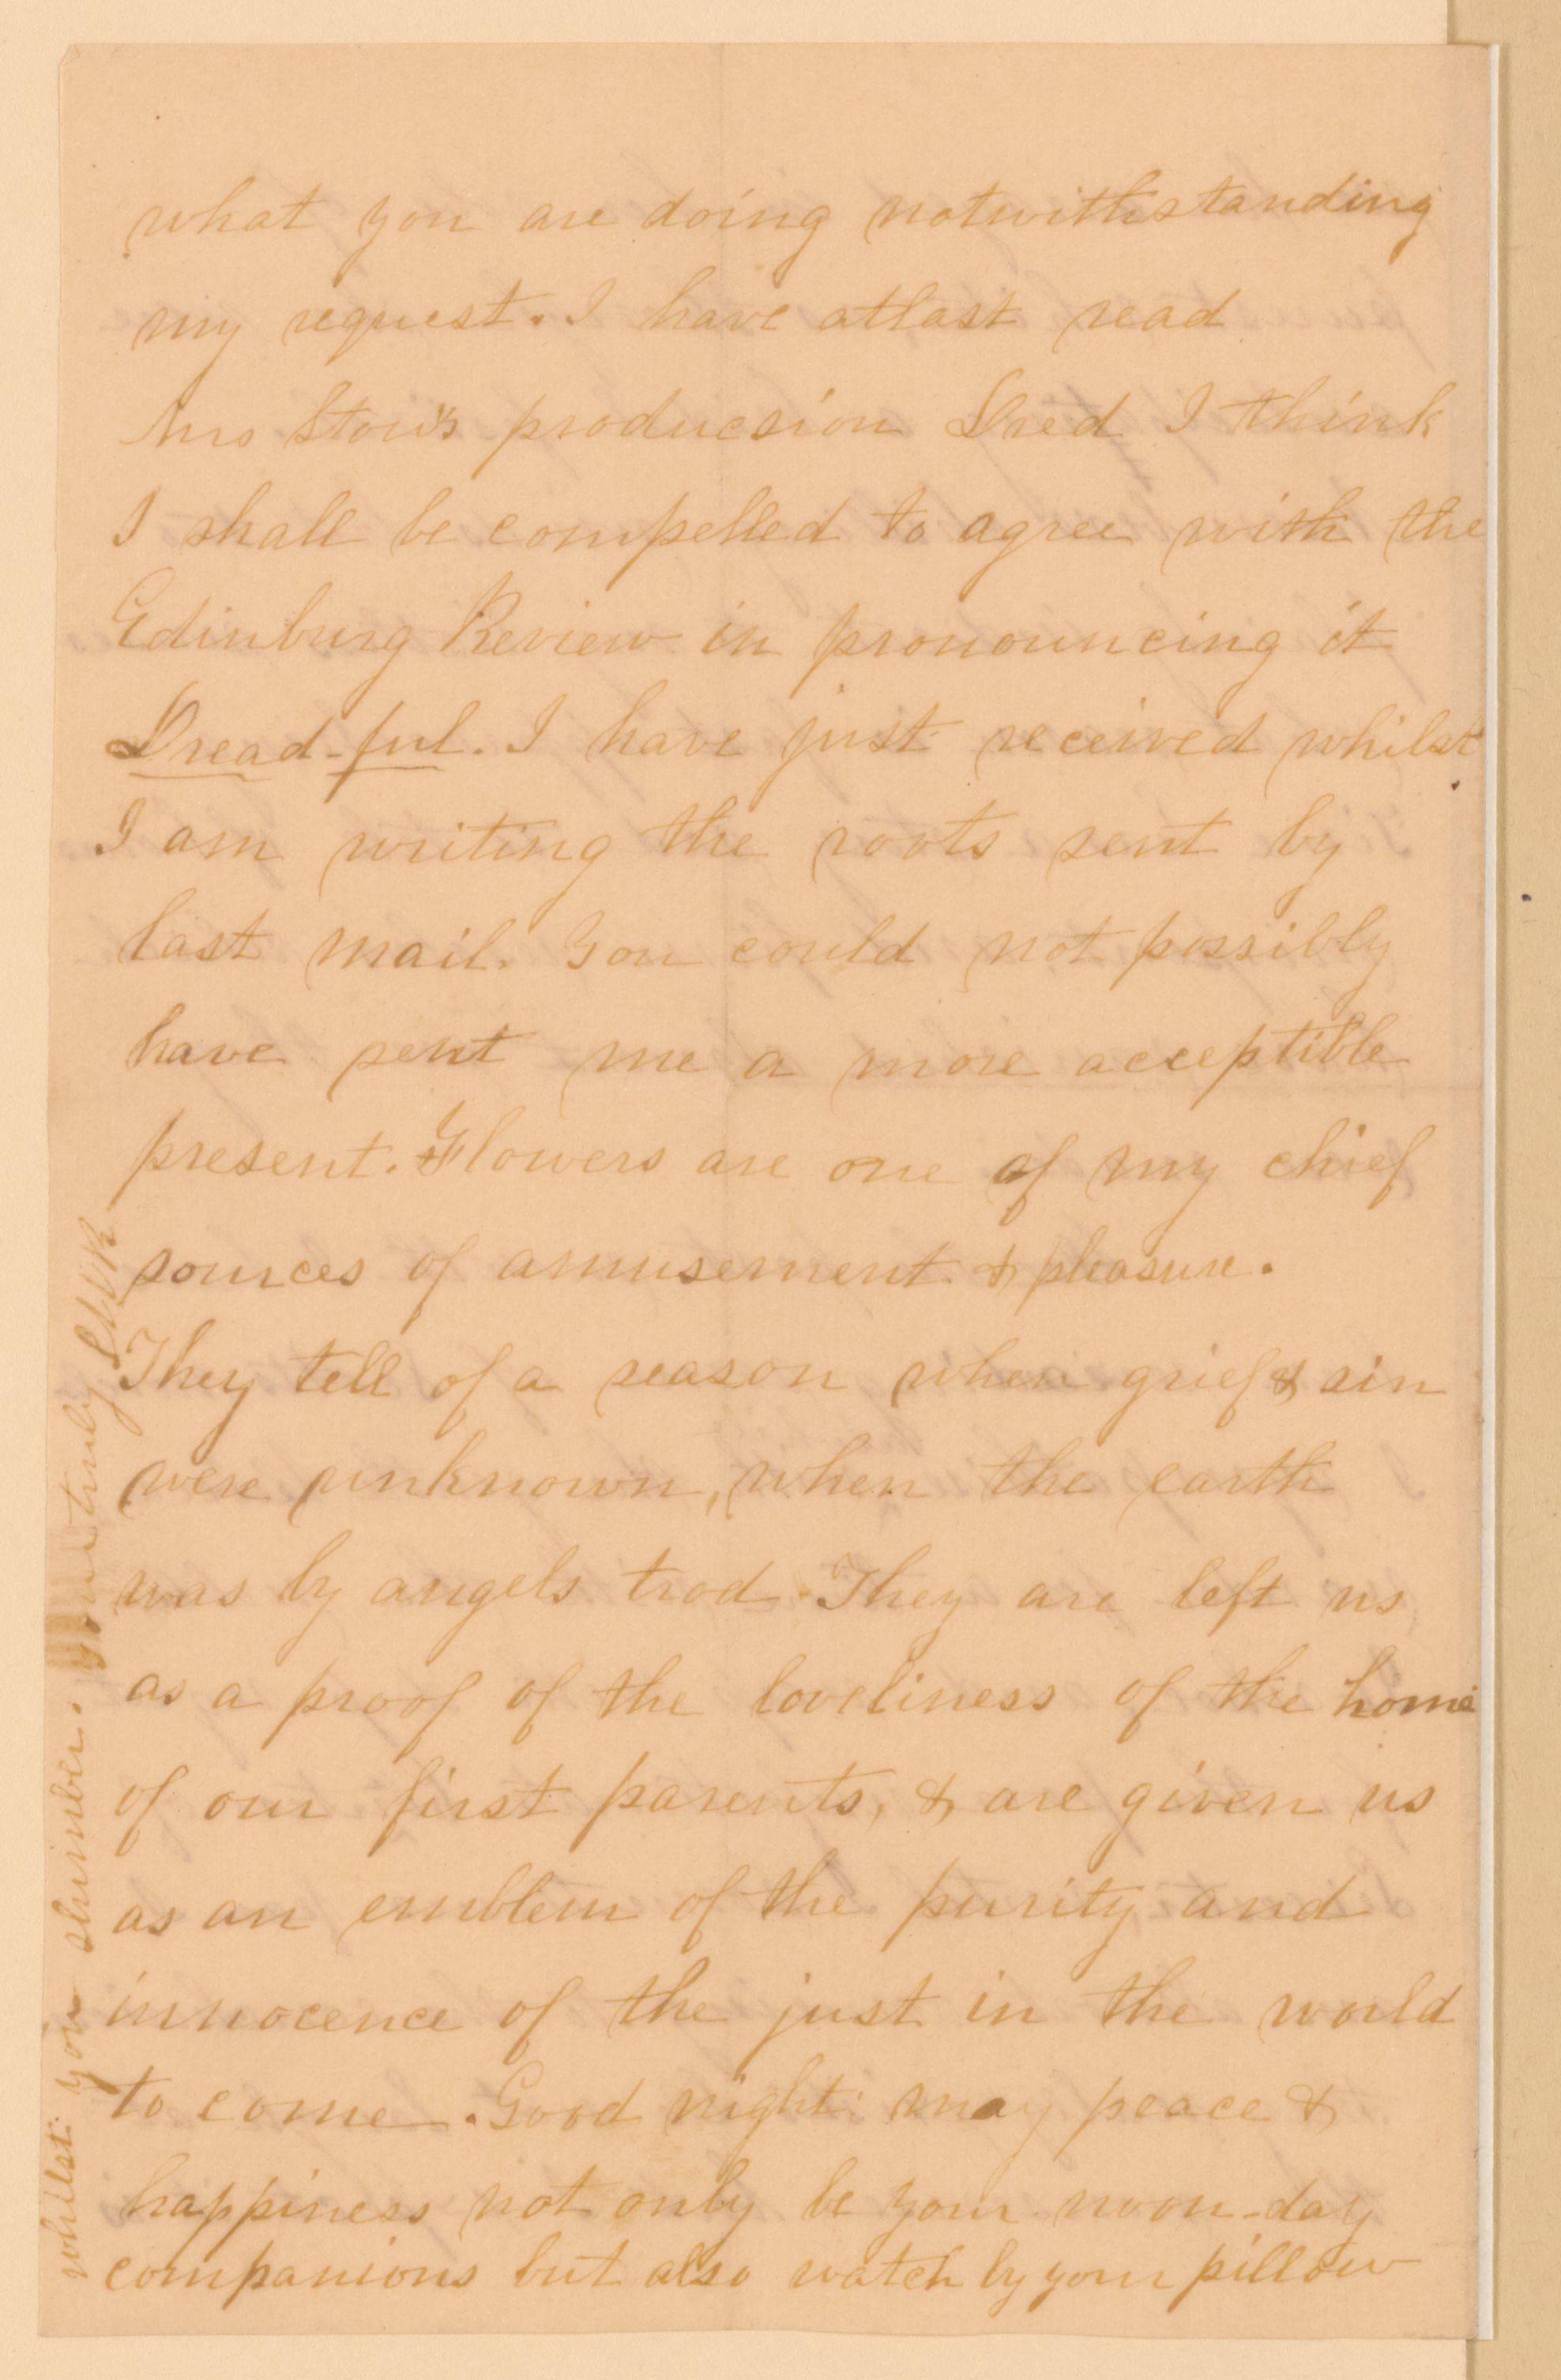 what you are doing notwithstanding
my request. I have atlast read
Mrs Stow's producsion Dred I think
I shall be compelled to agree with the
Edinburg Review in pronouncing it
Dread-ful. I have just received whilst
I am writing the roots sent by
last mail. You could not possibly
have sent me a more acceptible
present. Flowers are one of my chief
sources of amusement & pleasure.
They tell of a season when grief & sin
were unknown, when the earth
was by angels trod. They are left us
as a proof of the loveliness of the home
of our first parents, & are given us
as an emblem of the purity and
innocence of the just in the world
to come. Good night: may peace &
happiness not only be your noon-day
companions but also watch by your pillow
whilst you slumber. your truly